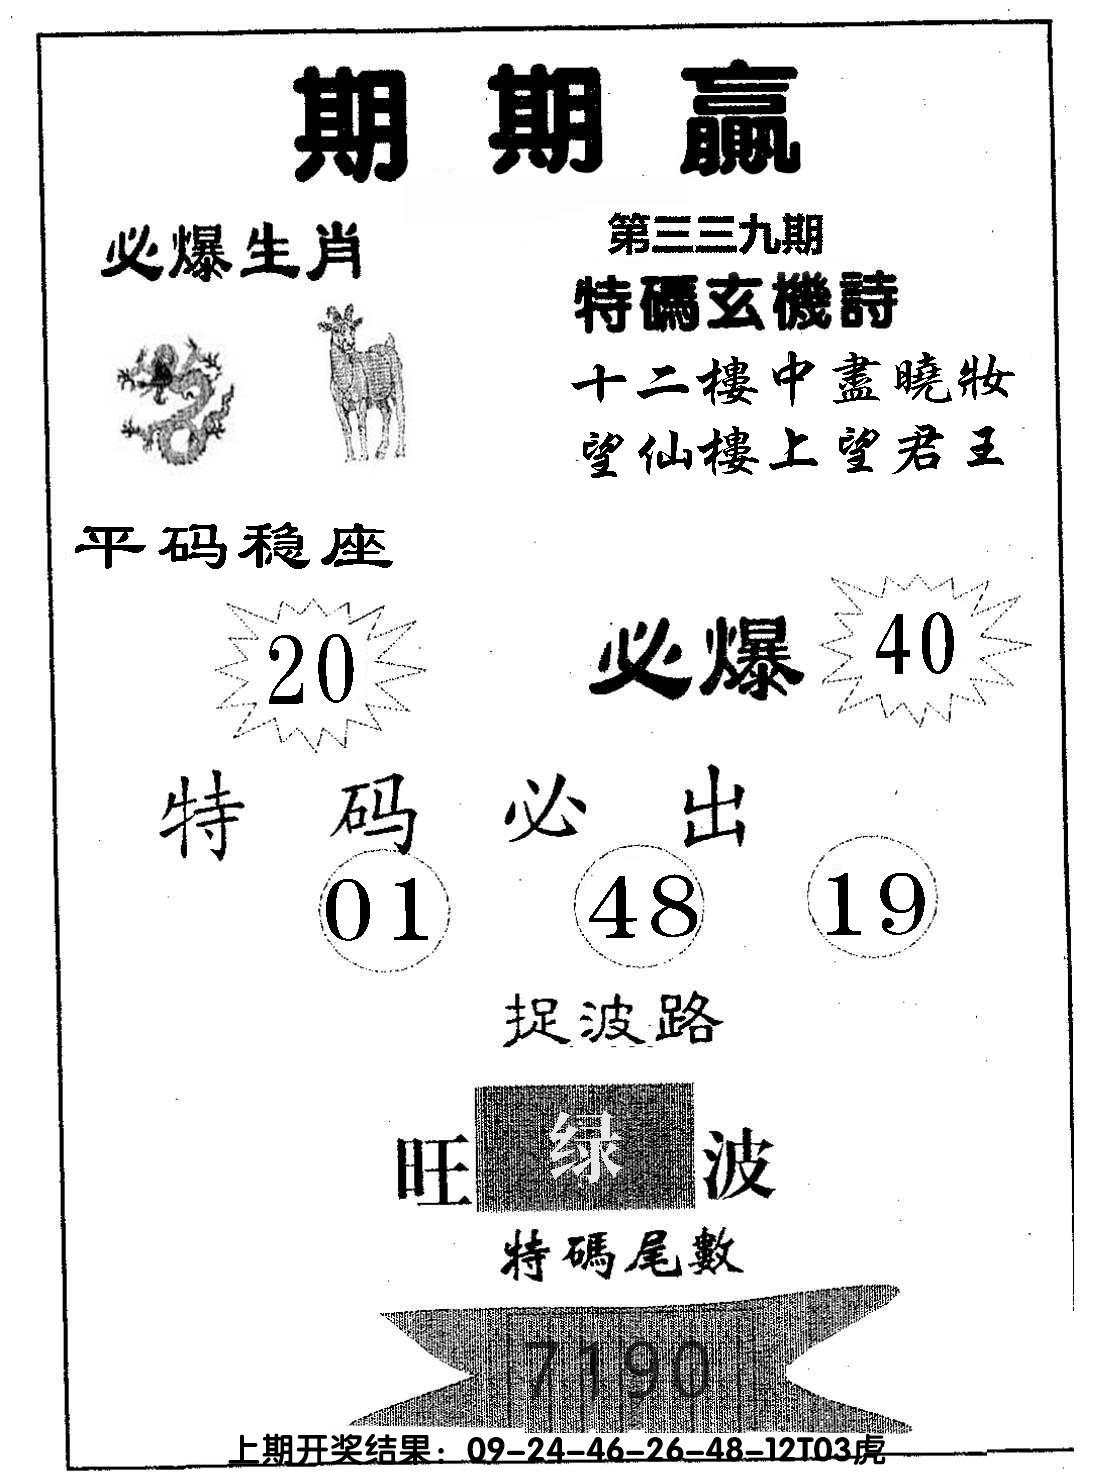 期期赢
第三三九期
必爆生肖
特碼玄機詩
十二樓中盡曉妝
望仙樓上望君王
平码稳座
20
必爆
40
特码必出
01 48 19
捉波路
旺绿波
特碼尾數
7190
上期开奖结果：09-24-46-26-48-12T03虎